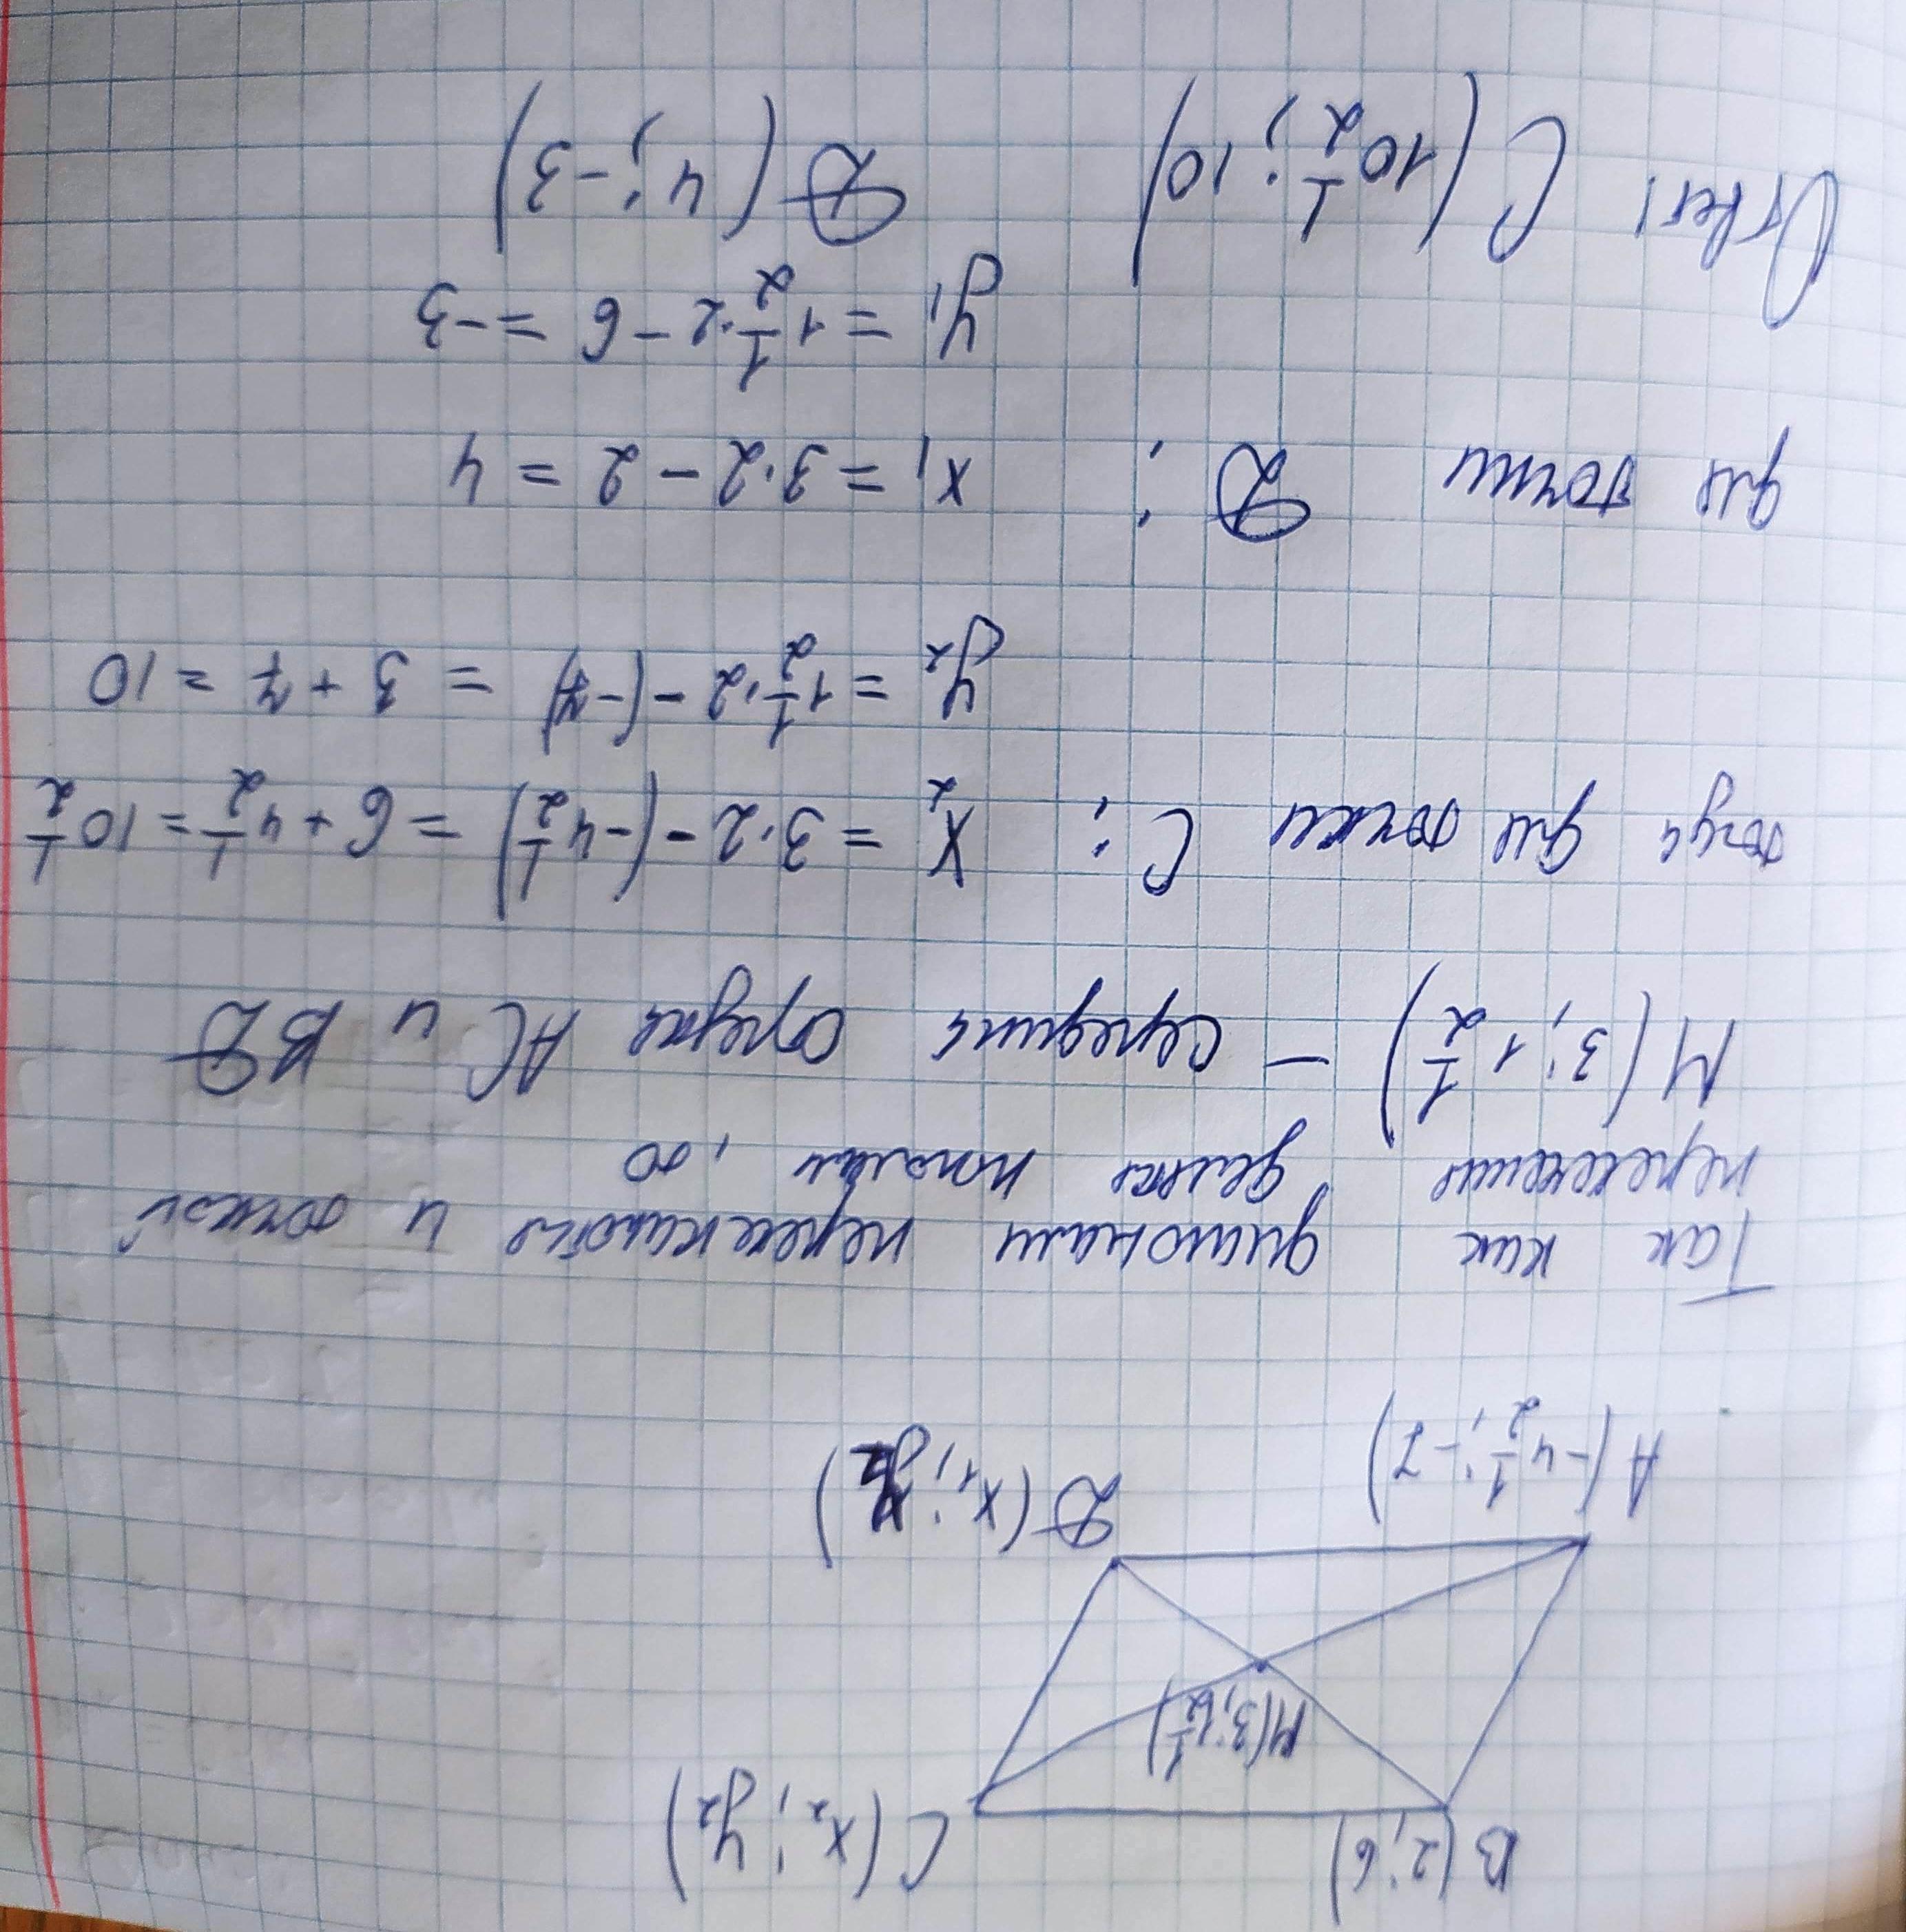 B(2;6) C(x₂; y₂)
M(3;1½)
A(-4½; -7) D(x₁; y₂)
Так как диагонали пересекаются и точкой
пересечения делятся пополам, то
M(3; 1½) - середина отрезка AC и BD
тогда для точки C: X₂ = 3·2 - (-4½) = 6 + 4½ = 10½
y₂ = 1½·2 - (-7) = 3 + 7 = 10
для точки D: x₁ = 3·2 - 2 = 4
y₁ = 1½·2 - 6 = -3
Ответ: C(10½; 10) D(4; -3)